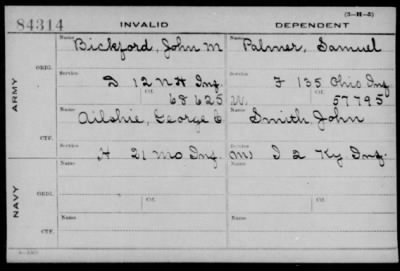 (3-H-5)
84314 INVALID DEPENDENT
Name Bickford, John M Name Palmer, Samuel
ORIG.
Service Ctf. Service Ctf.
D 12 N H Inf. F 135 Ohio Inf
68625 W. 57795
ARMY
Name Ailshie, George C Name Smith, John
CTF.
Service Service
H 21 Mo Inf. (M) I 2 Ky Inf.
Name Name
ORIG.
Service Ctf. Service Ctf.
NAVY
Name Name
CTF.
Service Service